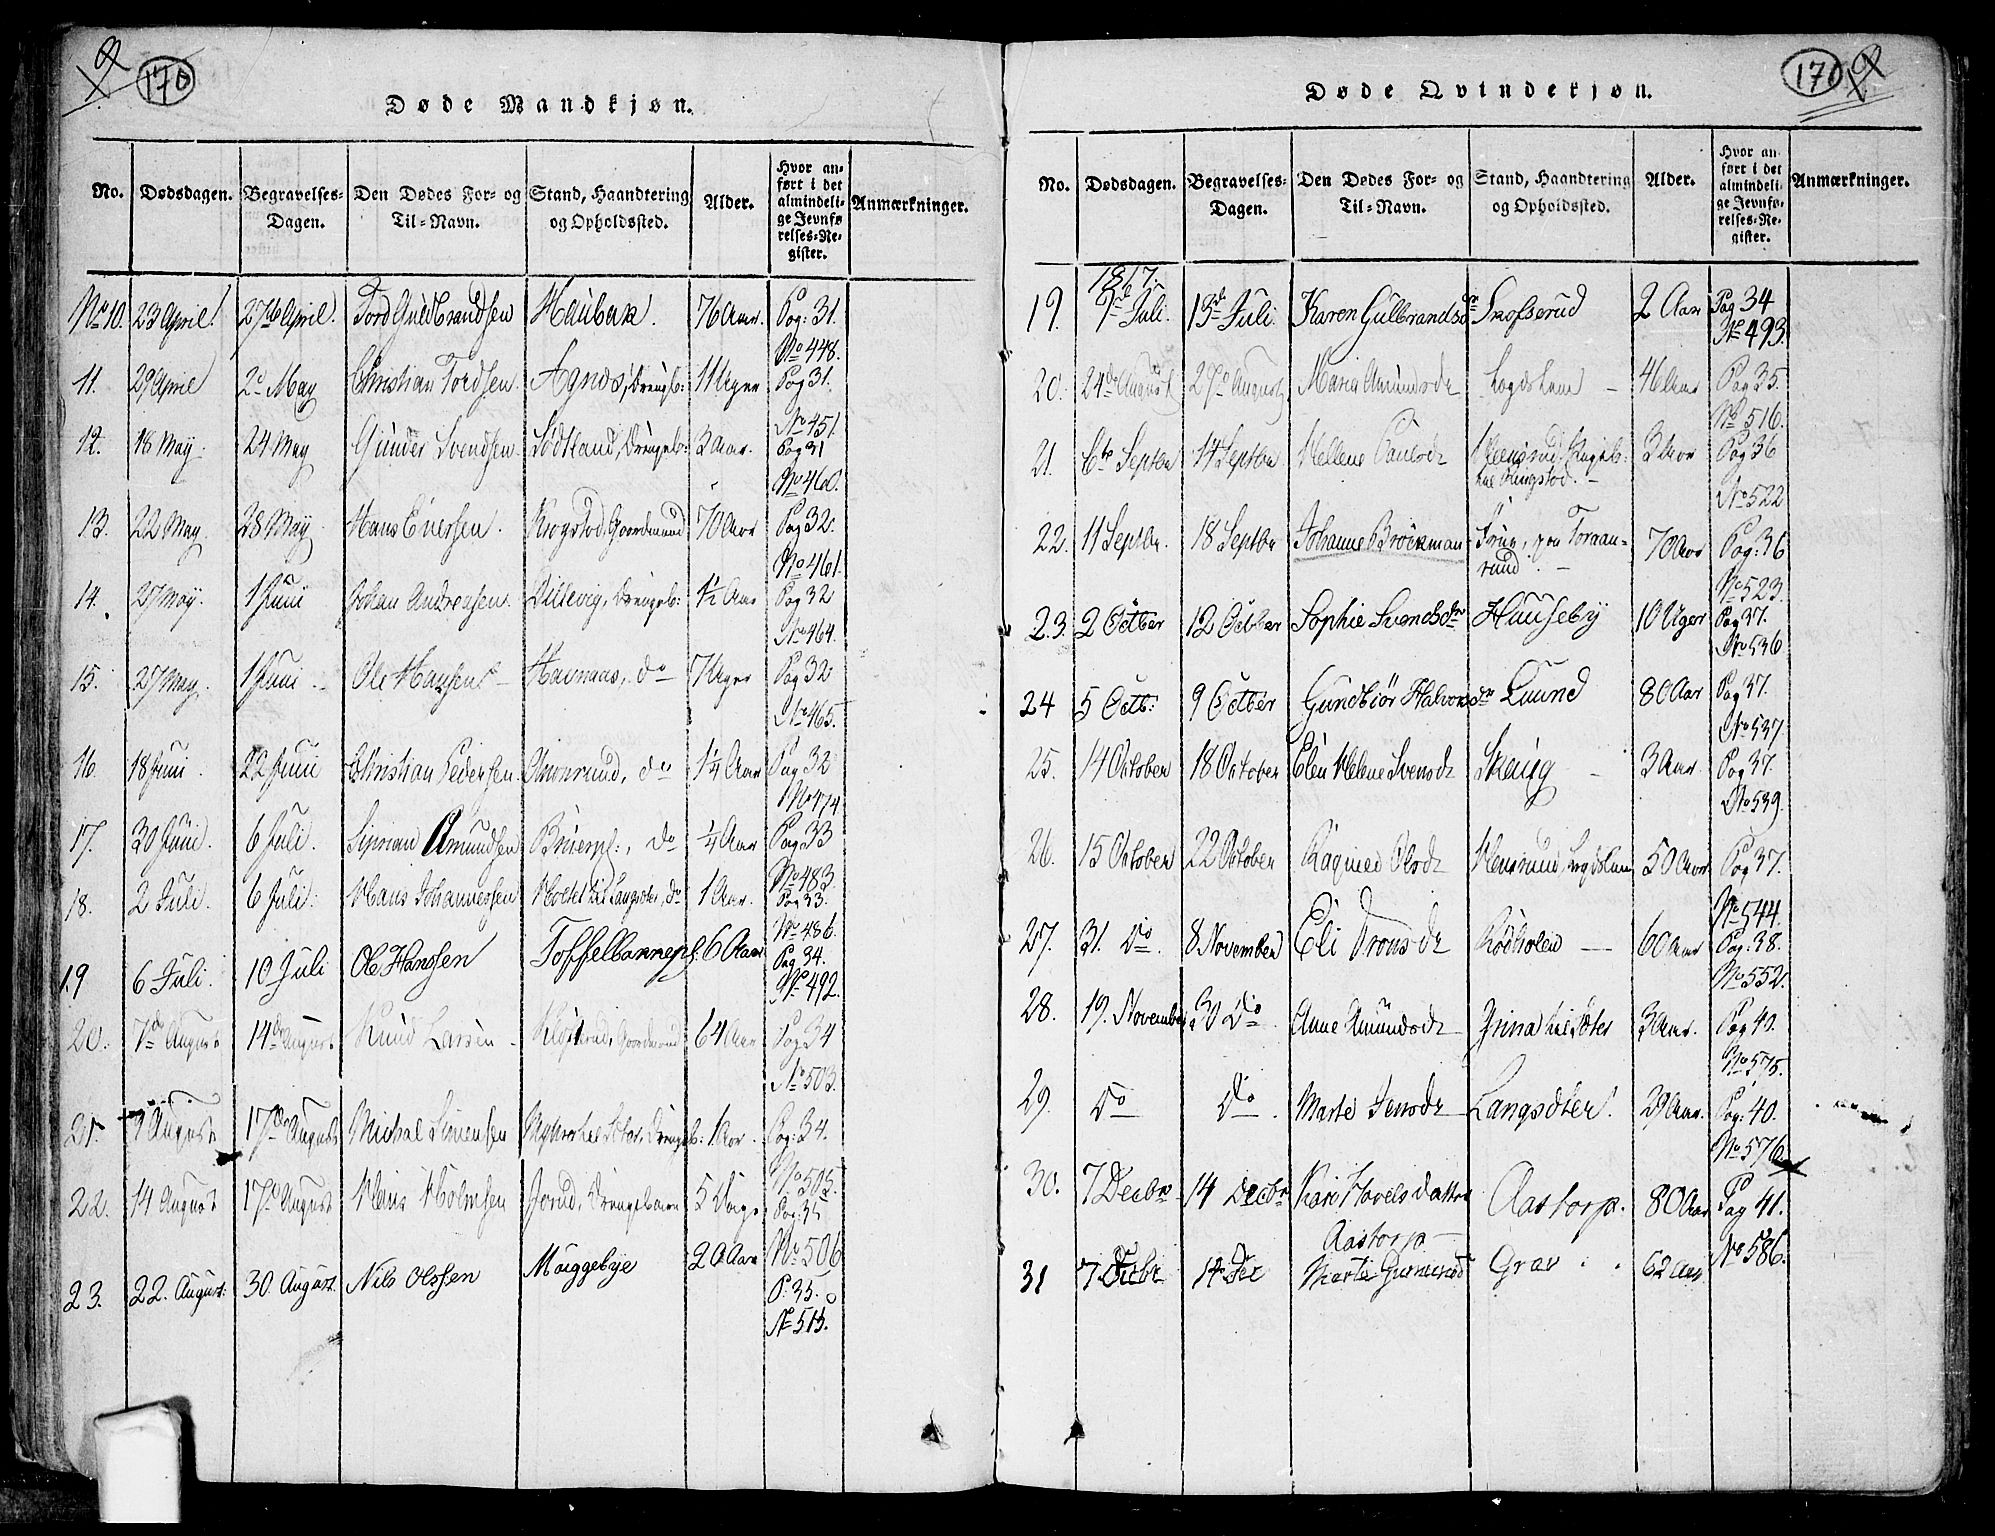 170
Døde Mandkjøn.
No. Dødsdagen. Begravelses-Dagen. Den Dødes For- og Til-Navn. Stand, Haandtering og Opholdssted. Alder. Hvor anført i det almindelige Jevnførelses-Register. Anmærkninger.
No 10. 23 April. 27de April. Tord Guldbrandsen Haubak. 76 Aar. Pag: 31. No 448.
11. 29 April 2 May Christian Tordsen Agnes, Drengeb: 11 Uger Pag 31. No 451.
12. 18 May. 24 May Gunder Svendsen. Sødstand, Drengeb: 3 Aar. Pag 31 No 460.
13. 22 May 28 May Hans Evensen. Krogstod, Goordmand 70 Aar Pag 32. No 461.
14. 27 May. 1 Juni Johan Andreasen. Dillevig, Drengeb: 1½ Aar Pag 32 No 464.
15. 27 May. 1 Juni Ole Hansen Havnaas, do 7 Uger Pag 32 No 465.
16. 18 Juni. 22 Juni Christian Pedersen. do 1¼ Aar Pag 32 No 474
17. 30 Juni. 6 Juli. Siprian Amundsen do ¼ Aar Pag 33 No 483.
18. 2 Juli. 6 Juli. Hans Johannessen do 1 Aar. Pag 33. No 486.
19 6 Juli. 10 Juli Ole Hanssen Toffelbannepl: 6 Aar Pag 34. No 492.
20. 7de August 14de August Knud Larsen Goordmand 64 Aar Pag 34 No 503.
21. 9 August 17de August Michal Simensen 1 Aar. Pag: 34. No 505.
22. 14 August 17de August Hans Holmsen Jorud, Drengebarn 5 Dage Pag: 35 No 506
23. 22. August: 30. August. Nils Olssen Moggebye 20 Aar P: 35. No 513.
171
Døde Qvindekjøn.
No. Dødsdagen. Begravelses-Dagen. Den Dødes For- og Til-Navn. Stand, Haandtering og Opholdssted. Alder. Hvor anført i det almindelige Jevnførelses-Register. Anmærkninger.
1817.
19. 9de Juli. 13de Juli. Karen Gulbrandsdr Skofserud 2 Aar Pag 34 No 493.
20. 24de August 27de August Maria Amundsdr Logdslem 46 Aar Pag 35. No 516.
21. 6te Septbr 14 Septbr Hellene Paulsdr 3 Aar Pag 36 No 522
22. 11 Septbr. 18 Septbr Johanne Brockman Frue, paa Toraanrund 70 Aar Pag: 36 No 523.
23. 2 Octber 12 Octber Sophie Svendsdr Hauseby 10 Uger Pag 37. No 536
24 5 Octb: 9 Octber Gundbiør Halvorsdr Luund 80 Aar Pag 37. No 537.
25. 14 October 18 October Elen Helene Svensdr Skaug 3 Aar. Pag 37. No 539.
26. 15 October 22 October Ragnild Olsdr Logdslem 50 Aar Pag 37. No 544.
27. 31. Do. 8 November Eli Tronsdr Rødholen 60 Aar Pag: 38. No 552.
28. 19. November 30 Do. Anne Amundsdr 3 Aar. Pag 40. No 575.
29. Do Do. Marte Jensdr Langsæter. 29 Aar. Pag: 40. No 576.
30. 7 Decbr 14 Decbr Kari Hovelsdatter Aastorp Aastorp. 80 Aar Pag 41. No 586.
31 7 Decbr 14 Dec Marte Gunnersd Grav 62 Aar